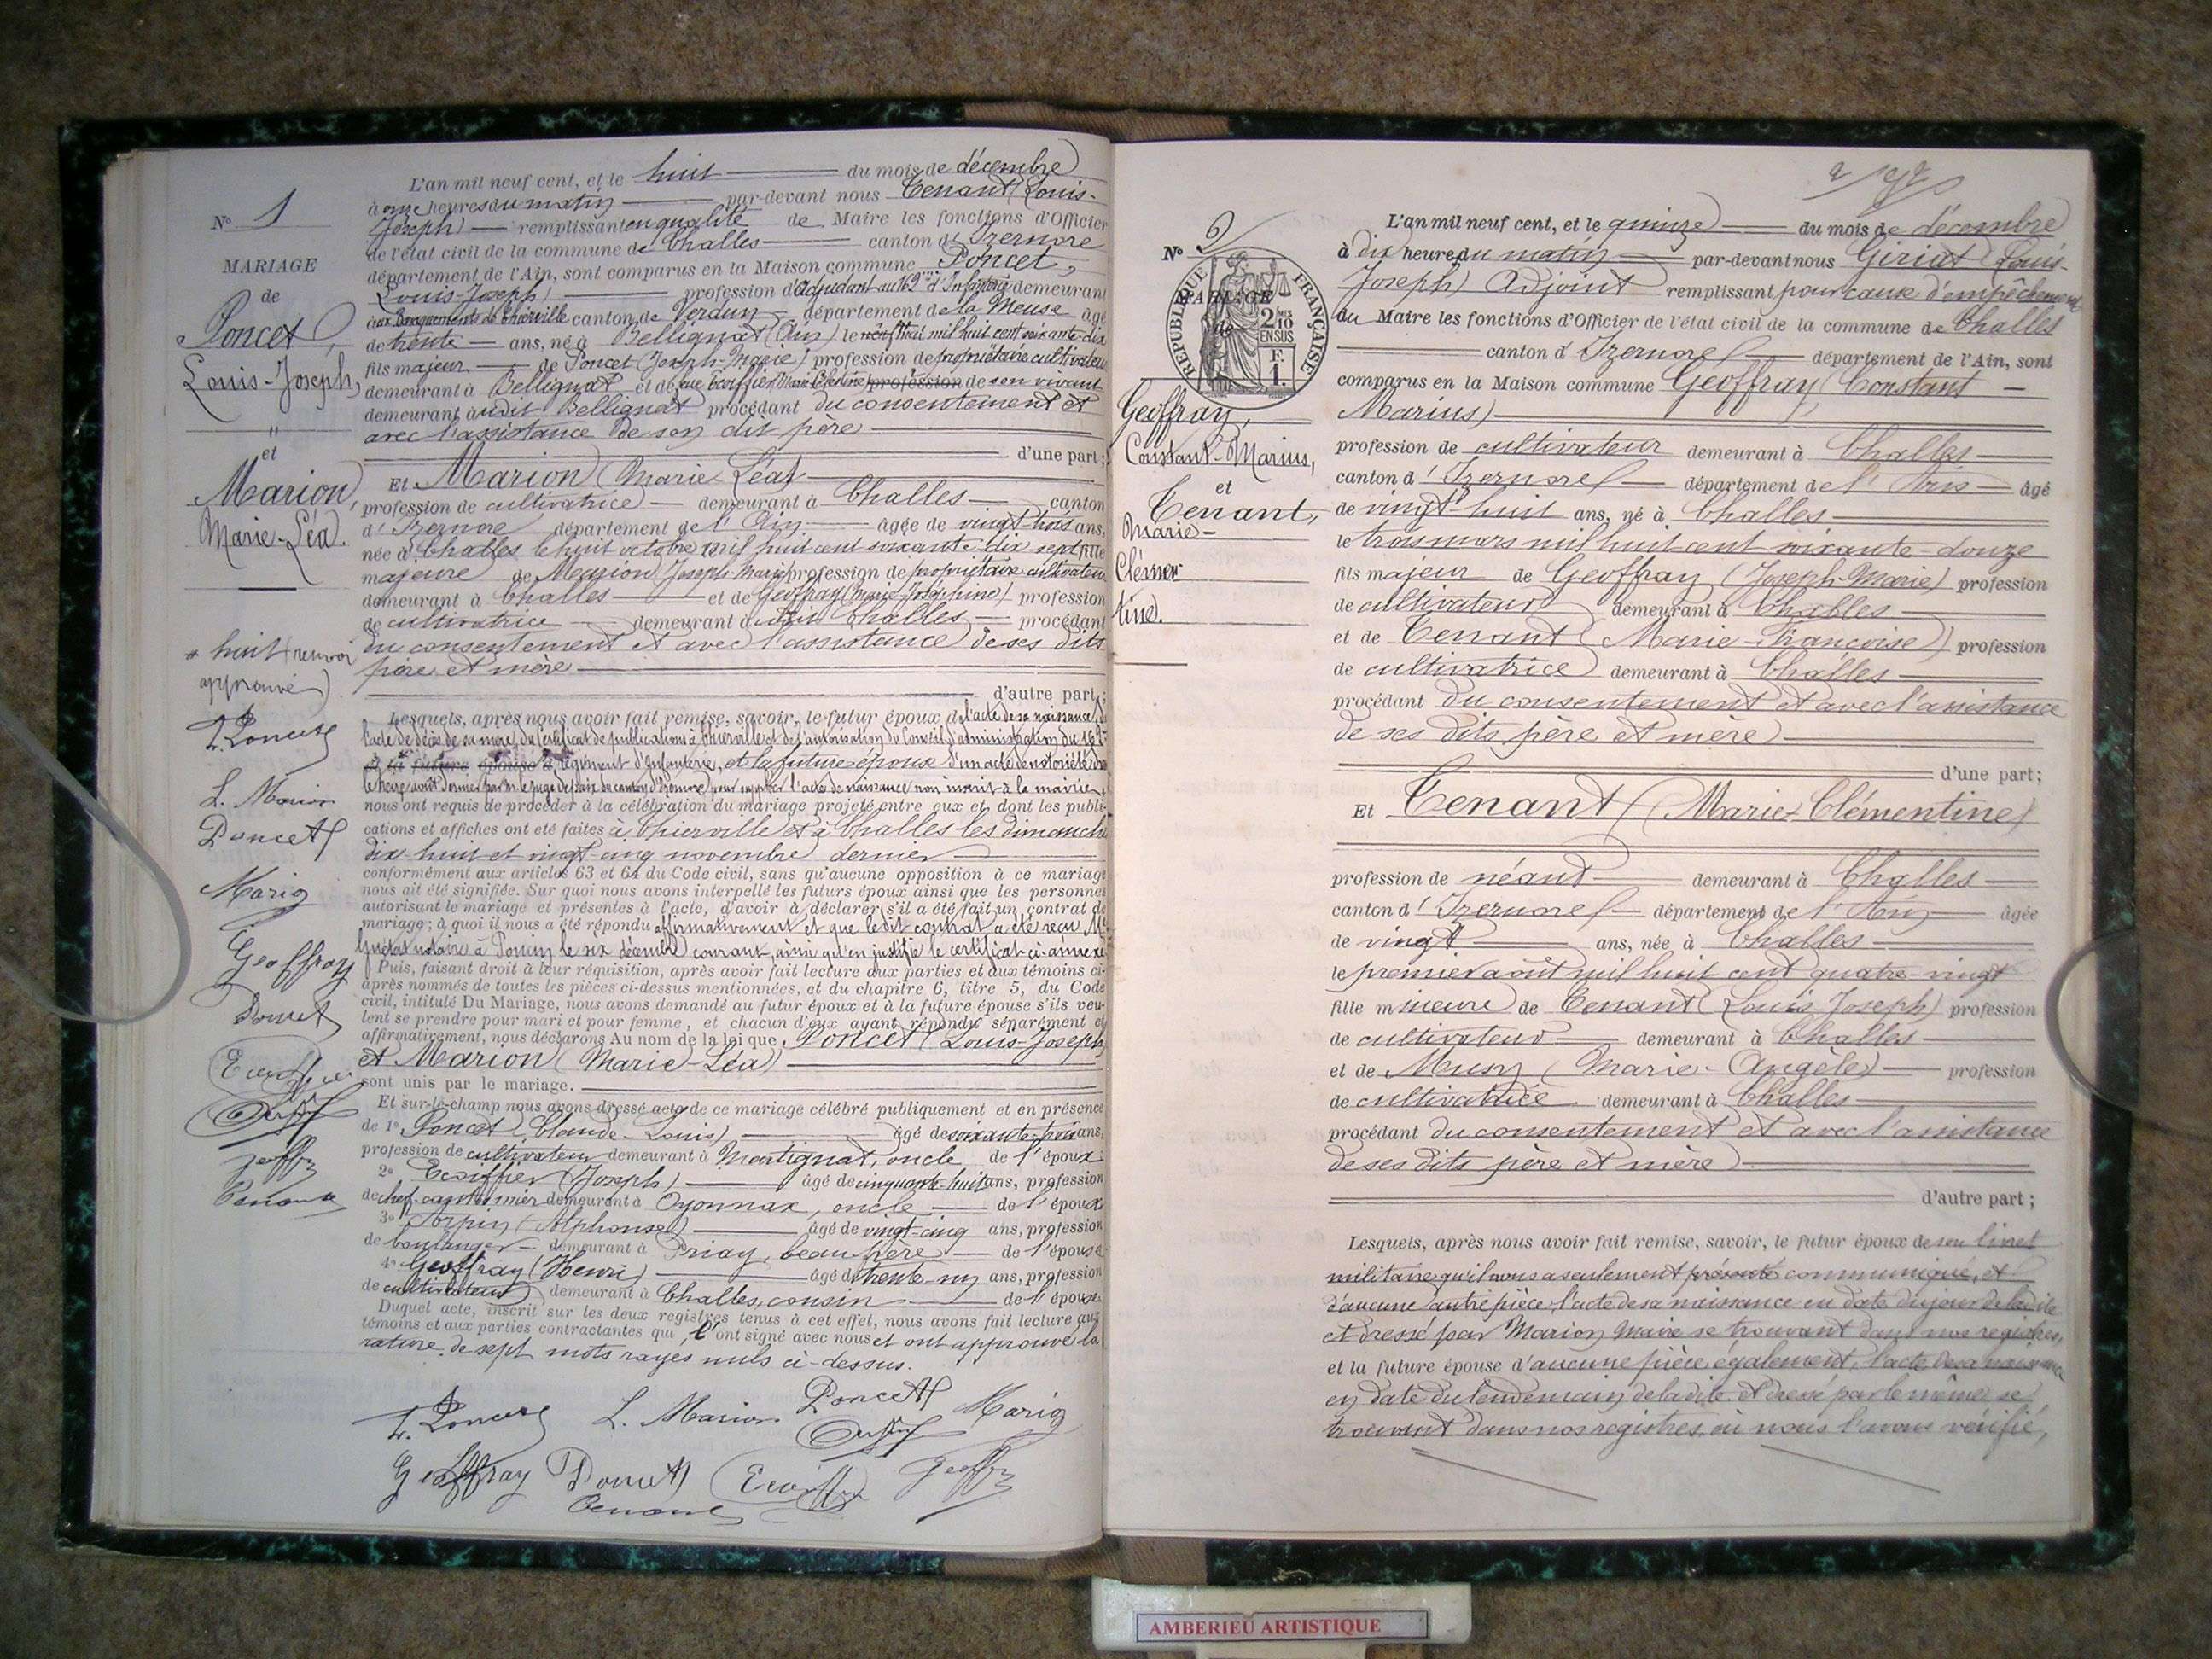 L'an mil neuf cent, et le huit du mois de décembre
à onze heures du matin par-devant nous Tenant (Louis-
Joseph) remplissant en qualité de Maire les fonctions d'Officier
de l'état civil de la commune de Challes canton d'Izernore
département de l'Ain, sont comparus en la Maison commune Poncet,
Louis-Joseph) profession d'adjudant au 162e d'Infanterie demeurant
aux Baraquements de Thierville canton de Verdun département de la Meuse âgé
de trente ans, né à Bellignat (Ain) le neuf mai mil huit cent soixante-dix
fils majeur de Poncet (Joseph-Marie) profession de propriétaire cultivateur
demeurant à Bellignat et de feue Ecoiffier Marie profession de son vivant
demeurant audit Bellignat procédant du consentement et
avec l'assistance de son dit père
d'une part;
Et Marion (Marie-Léa)
profession de cultivatrice demeurant à Challes canton
d'Izernore département de l'Ain âgée de vingt-trois ans,
née à Challes le huit octobre mil huit cent soixante-dix sept fille
majeure de Marion Joseph-Marie profession de propriétaire cultivateur
demeurant à Challes et de Geoffray (Marie-Joséphine) profession
de cultivatrice demeurant audit Challes procédant
du consentement et avec l'assistance de ses dits
père et mère
d'autre part;
Lesquels, après nous avoir fait remise, savoir, le futur époux de l'acte de sa naissance, de
l'acte de décès de sa mère, du certificat de publications à Thierville et de l'autorisation du Conseil d'administration du 162e
et la future épouse d régiment d'Infanterie, et la future épouse d'un acte de notoriété
le treize août dernier par le juge de paix du canton d'Izernore pour suppléer l'acte de naissance non inscrit à la mairie,
nous ont requis de procéder à la célébration du mariage projeté entre eux et dont les publi-
cations et affiches ont été faites à Thierville et à Challes les dimanche
dix-huit et vingt-cinq novembre dernier
conformément aux articles 63 et 64 du Code civil, sans qu'aucune opposition à ce mariage
nous ait été signifiée. Sur quoi nous avons interpellé les futurs époux ainsi que les personnes
autorisant le mariage et présentes à l'acte, d'avoir à déclarer s'il a été fait un contrat de
mariage; à quoi il nous a été répondu affirmativement et que ledit contrat a été reçu Me
notaire à Poncin le six décembre courant, ainsi qu'en justifie le certificat ci-annexé
Puis, faisant droit à leur réquisition, après avoir fait lecture aux parties et aux témoins ci-
après nommés de toutes les pièces ci-dessus mentionnées, et du chapitre 6, titre 5, du Code
civil, intitulé Du Mariage, nous avons demandé au futur époux et à la future épouse s'ils veu-
lent se prendre pour mari et pour femme, et chacun d'eux ayant répondu séparément et
affirmativement, nous déclarons Au nom de la loi que Poncet (Louis-Joseph)
et Marion (Marie-Léa)
sont unis par le mariage.
Et sur-le-champ nous avons dressé acte de ce mariage célébré publiquement et en présence
de 1° Poncet (Claude-Louis) âgé de soixante-trois ans,
profession de cultivateur demeurant à Martignat, oncle de l'époux
2° Ecoiffier (Joseph) âgé de cinquante-huit ans, profession
de chef cantonnier demeurant à Oyonnax, oncle de l'époux
3° (Alphonse) âgé de vingt-cinq ans, profession
de boulanger demeurant à Priay, beau-frère de l'épouse
4° Geoffray (Henri) âgé de trente-un ans, profession
de cultivateur demeurant à Challes, cousin de l'épouse
Duquel acte, inscrit sur les deux registres tenus à cet effet, nous avons fait lecture aux
témoins et aux parties contractantes qui l'ont signé avec nous et ont approuvé la
rature de sept mots rayés nuls ci-dessus.
L. Poncet L. Marion Poncet Marion
Geoffray Poncet Ecoiffier Geoffray
Tenant
N° 1
MARIAGE
de
Poncet,
Louis-Joseph,
et
Marion,
Marie-Léa.
* huit (renvoi
approuvé)
L. Poncet
L. Marion
Poncet
Marion
Geoffray
Poncet
Ecoiffier
Geoffray
Tenant
N° 2
RÉPUBLIQUE FRANÇAISE
2/10 EN SUS
F. 1.
MARIAGE
de
Geoffray,
Constant-Marius,
et
Tenant,
Marie-
Clémen
tine.
L'an mil neuf cent, et le quinze du mois de décembre
à dix heures du matin par-devant nous Giriat (Louis-
Joseph) Adjoint remplissant pour cause d'empêchement
du Maire les fonctions d'Officier de l'état civil de la commune de Challes
canton d'Izernore département de l'Ain, sont
comparus en la Maison commune Geoffray (Constant-
Marius)
profession de cultivateur demeurant à Challes
canton d'Izernore département de l'Ain âgé
de vingt-huit ans, né à Challes
le trois mars mil huit cent soixante-douze
fils majeur de Geoffray (Joseph-Marie) profession
de cultivateur demeurant à Challes
et de Tenant (Marie-Françoise) profession
de cultivatrice demeurant à Challes
procédant du consentement et avec l'assistance
de ses dits père et mère
d'une part;
Et Tenant (Marie-Clémentine)
profession de néant demeurant à Challes
canton d'Izernore département de l'Ain âgée
de vingt ans, née à Challes
le premier août mil huit cent quatre-vingt
fille mineure de Tenant (Louis Joseph) profession
de cultivateur demeurant à Challes
et de Musy (Marie-Angèle) profession
de cultivatrice demeurant à Challes
procédant du consentement et avec l'assistance
de ses dits père et mère
d'autre part;
Lesquels, après nous avoir fait remise, savoir, le futur époux de son livret
militaire qu'il nous a seulement présenté communiqué, et
d'aucune autre pièce, l'acte de sa naissance en date du jour de ladite
et dressé par Marion Maire se trouvant dans nos registres,
et la future épouse d'aucune pièce également, l'acte de sa naissance
en date du lendemain de ladite et dressé par le même se
trouvant dans nos registres, où nous l'avons vérifié,
AMBERIEU ARTISTIQUE